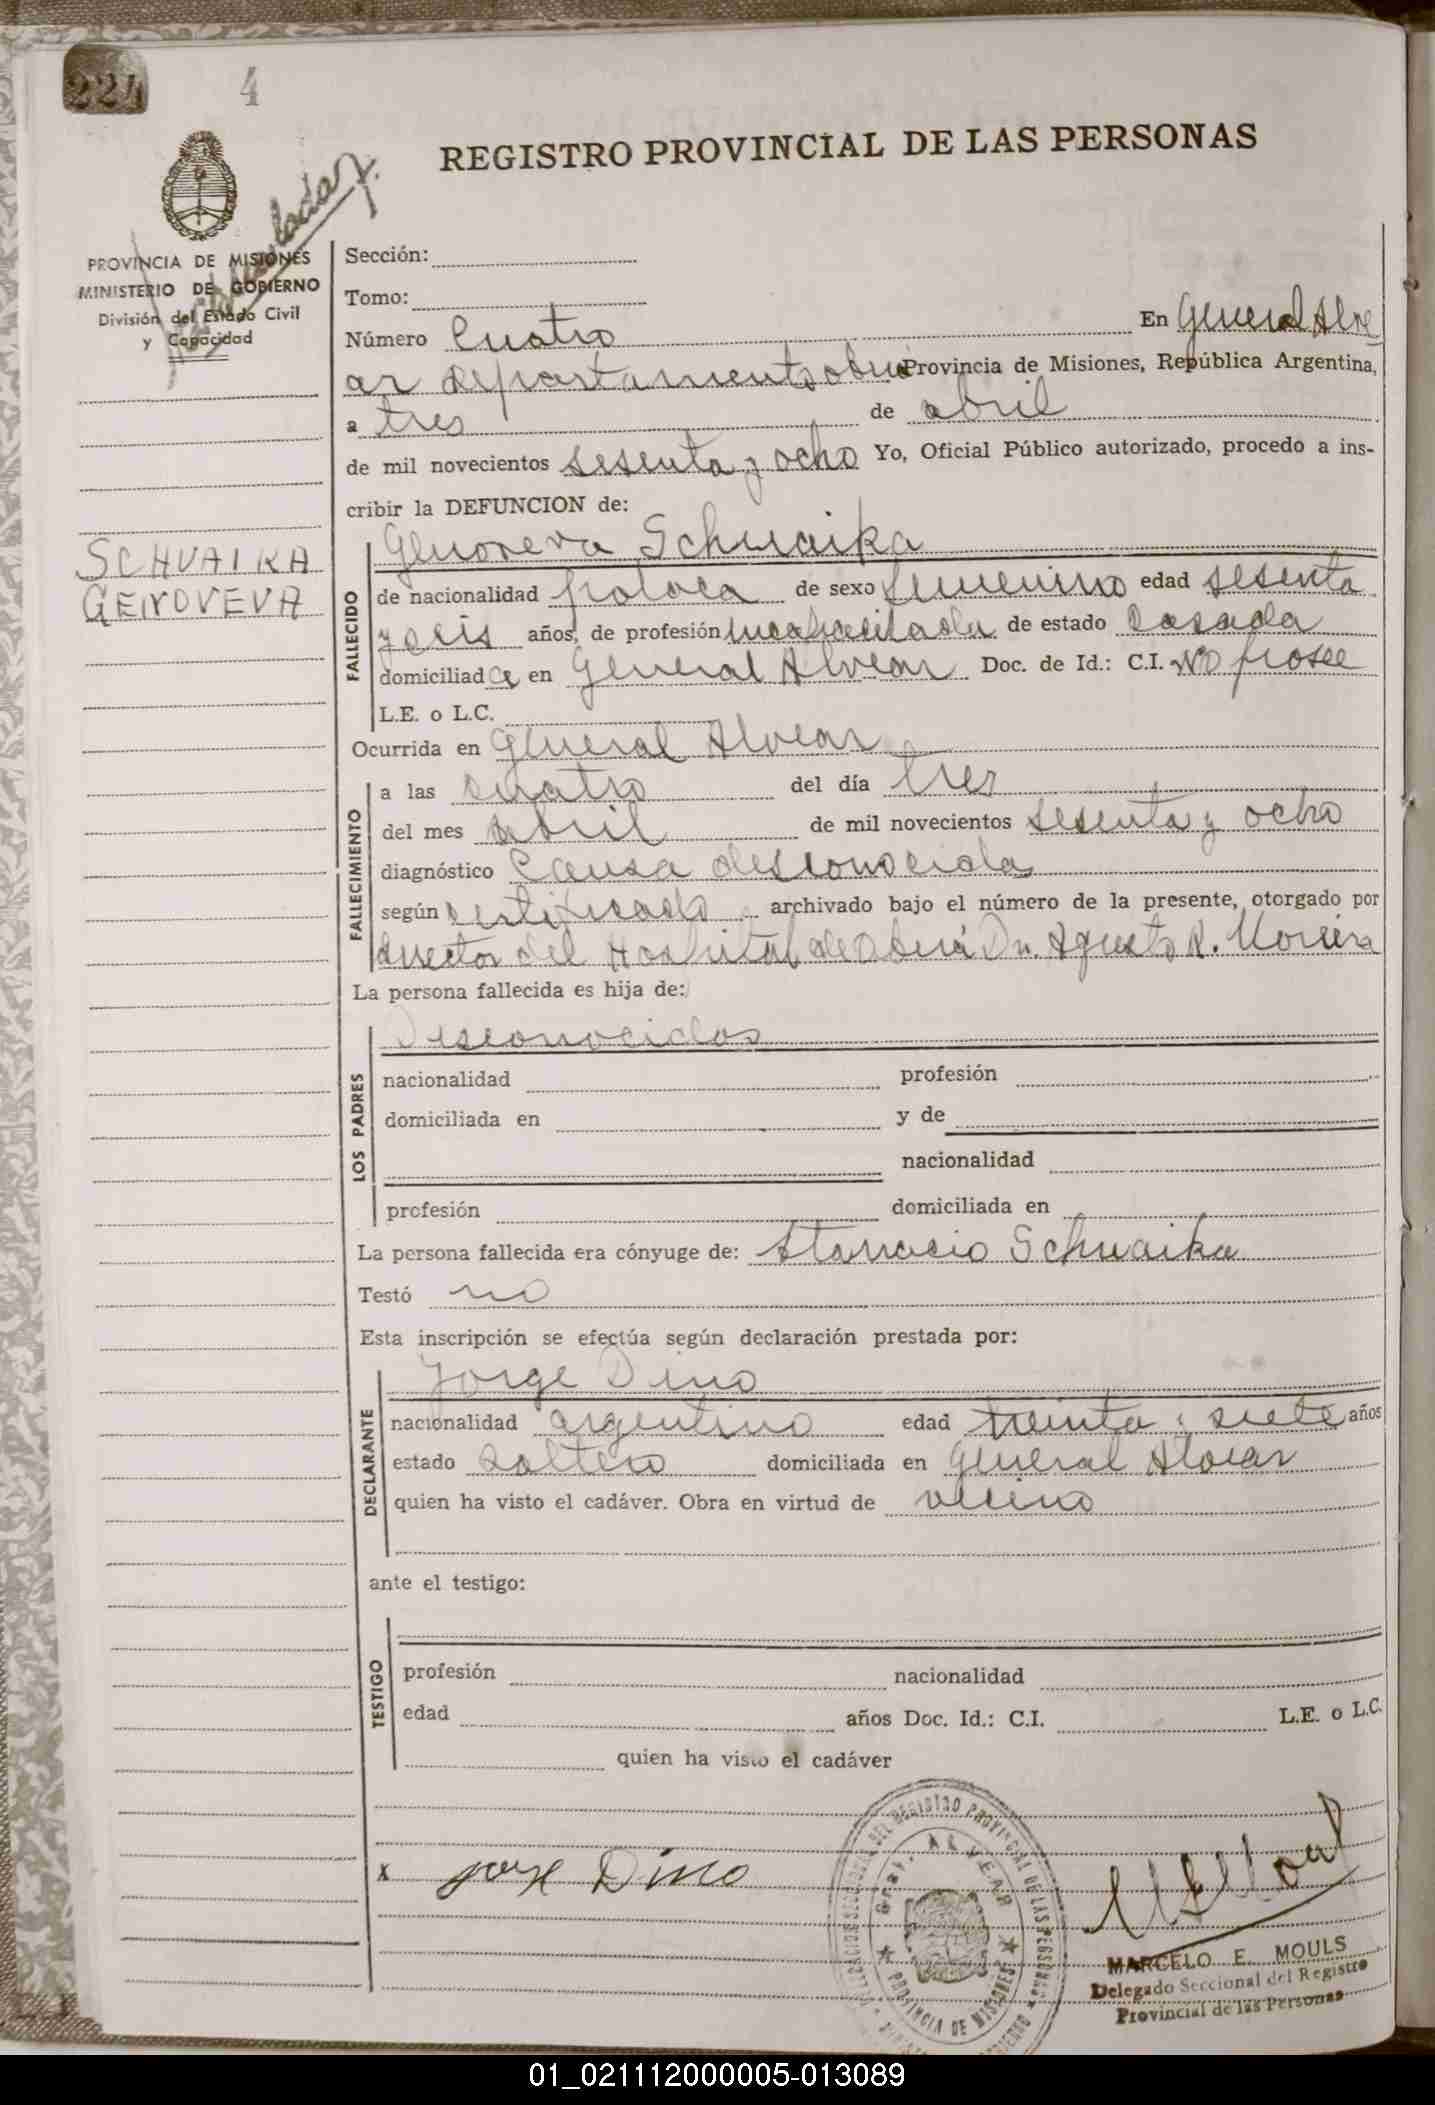 224 4
REGISTRO PROVINCIAL DE LAS PERSONAS
PROVINCIA DE MISIONES
MINISTERIO DE GOBIERNO
División del Estado Civil
y Capacidad
SCHUAIKA
GENOVEVA
Sección:
Tomo:
Número Cuatro En General Alve
ar departamento Oberá Provincia de Misiones, República Argentina,
a tres de abril
de mil novecientos sesenta y ocho Yo, Oficial Público autorizado, procedo a ins-
cribir la DEFUNCION de:
FALLECIDO
Genoveva Schuaika
de nacionalidad polaca de sexo femenino edad sesenta
y seis años, de profesión incapacitada de estado Casada
domiciliada en General Alvear Doc. de Id.: C.I. No posee
L.E. o L.C.
Ocurrida en General Alvear
FALLECIMIENTO
a las cuatro del día tres
del mes abril de mil novecientos sesenta y ocho
diagnóstico Causa desconocida
según certificado archivado bajo el número de la presente, otorgado por
director del Hospital de Oberá Dr. Agusto R. Moreira
La persona fallecida es hija de:
LOS PADRES
Desconocidos
nacionalidad profesión
domiciliada en y de
nacionalidad
profesión domiciliada en
La persona fallecida era cónyuge de: Atanacio Schuaika
Testó no
Esta inscripción se efectúa según declaración prestada por:
DECLARANTE
Jorge Dino
nacionalidad argentino edad treinta i siete años
estado Soltero domiciliada en General Alvear
quien ha visto el cadáver. Obra en virtud de vecino
ante el testigo:
TESTIGO
profesión nacionalidad
edad años Doc. Id.: C.I. L.E. o L.C.
quien ha visto el cadáver
x Jorge Dino
GRAL. ALVEAR
PROVINCIA DE MISIONES
MARCELO E. MOULS
Delegado Seccional del Registro
Provincial de las Personas
01_021112000005-013089